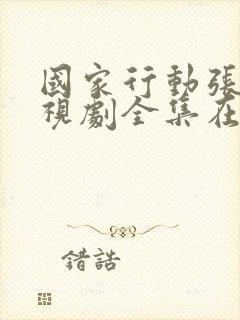 國家行動張
視劇全集在
錯誥